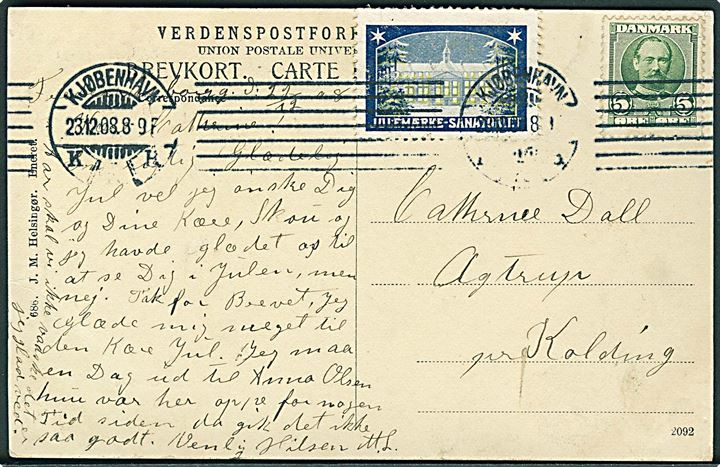 VERDENSPOSTFOR
UNION POSTALE UNIVE
BREVKORT. CARTE
DANMARK
5 5
JULEMÆRKE-SANATORIET
KJØBENHAVN
23.12.08.8-9F
K
KJØBENHAVN
d. 22/12 08
Cathrine!
Glædelig
Jul vel jeg ønske Dig
og Dine Kære, Skou og
jeg havde glædet os til
at se Dig i Julen, men
nej. Tak for Brevet, jeg
glæde mig meget til
den Kære Jul. Jeg maa
en Dag ud til Anna Olsen
hun var her oppe for nogen
Tid siden da gik det ikke
saa godt. Venlig Hilsen M.L.
Cathrine Dall
Agtrup
pr Kolding
686. J. M. Helsingør. Eneret.
2092